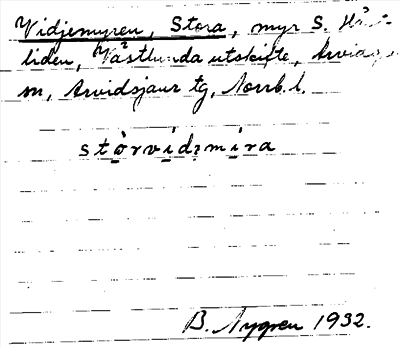 Vidjemyren, Stora, myr S.
liden, Västlunda utskifte,
sn, Arvidsjaur tg, Norrb. l.
stòrvídɜmira
B. Nygren 1932.